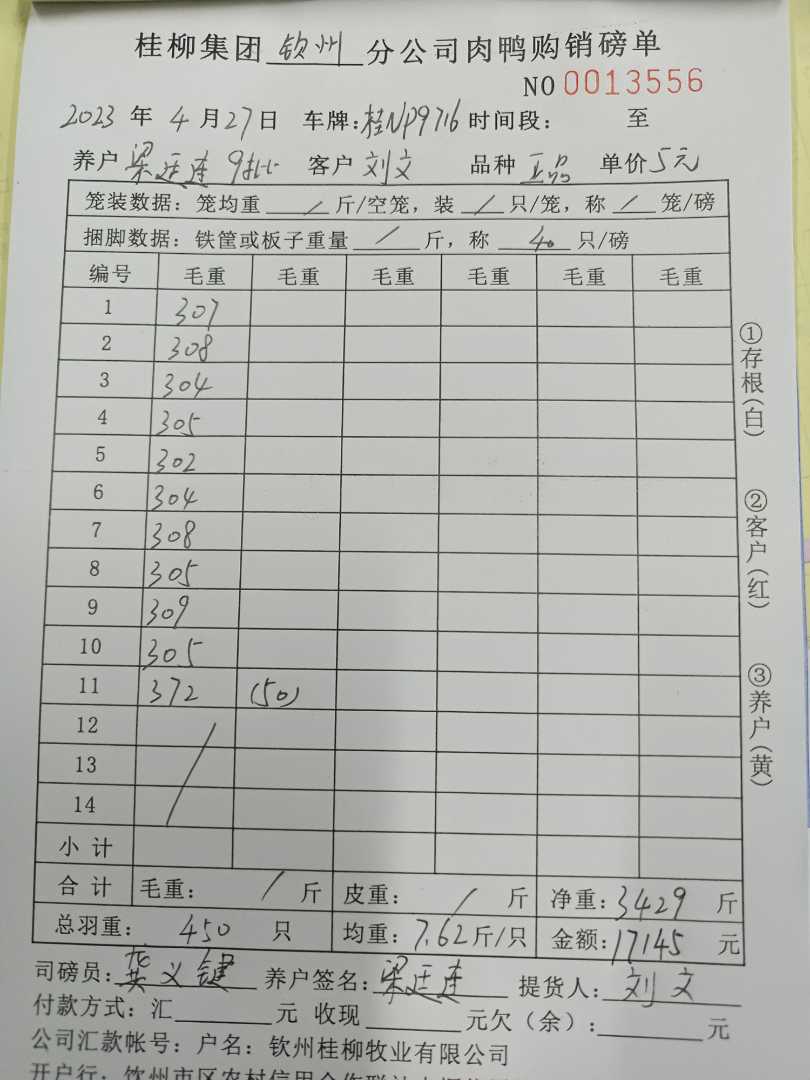 桂柳集团 钦州 分公司肉鸭购销磅单
NO 0013556
2023 年 4 月 27 日 车牌:桂NP9716 时间段: 至
养户 梁廷连 9批 客户 刘文 品种 正品 单价 5元
笼装数据: 笼均重 / 斤/空笼, 装 / 只/笼, 称 / 笼/磅
捆脚数据: 铁筐或板子重量 / 斤, 称 40 只/磅
编号 毛重 毛重 毛重 毛重 毛重 毛重
1 307
2 308
3 304
4 305
5 302
6 304
7 308
8 305
9 309
10 305
11 372 (50)
12
13
14
小 计
合 计 毛重: / 斤 皮重: / 斤 净重: 3429 斤
总羽重: 450 只 均重: 7.62 斤/只 金额: 17145 元
司磅员: 义键 养户签名: 梁廷连 提货人: 刘文
付款方式: 汇 元 收现 元欠(余): 元
公司汇款帐号: 户名: 钦州桂柳牧业有限公司
开户行: 钦州市区农村信用合作联社
①存根(白)
②客户(红)
③养户(黄)